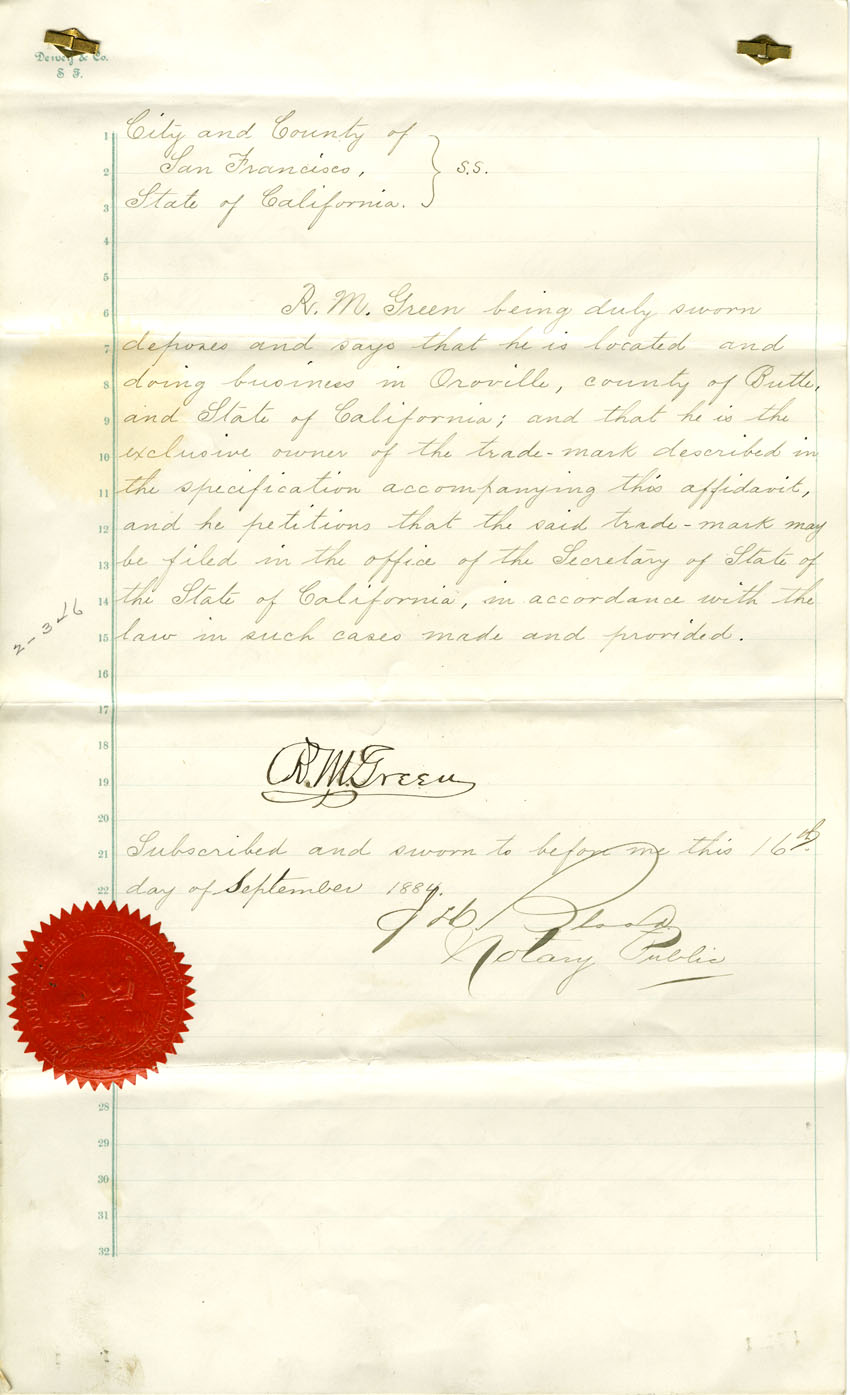 Dewey & Co.
S F.
1 City and County of
2 San Francisco, } s.s.
3 State of California.
4
5
6 R. M. Green being duly sworn
7 deposes and says that he is located and
8 doing business in Oroville, county of Butte,
9 and State of California; and that he is the
10 exclusive owner of the trade-mark described in
11 the specification accompanying this affidavit,
12 and he petitions that the said trade-mark may
13 be filed in the office of the Secretary of State of
14 the State of California, in accordance with the
15 law in such cases made and provided.
16
17
18
19 R. M. Green
20
21 Subscribed and sworn to before me this 16th
22 day of September 1884.
Blood
Notary Public
28
29
30
31
32